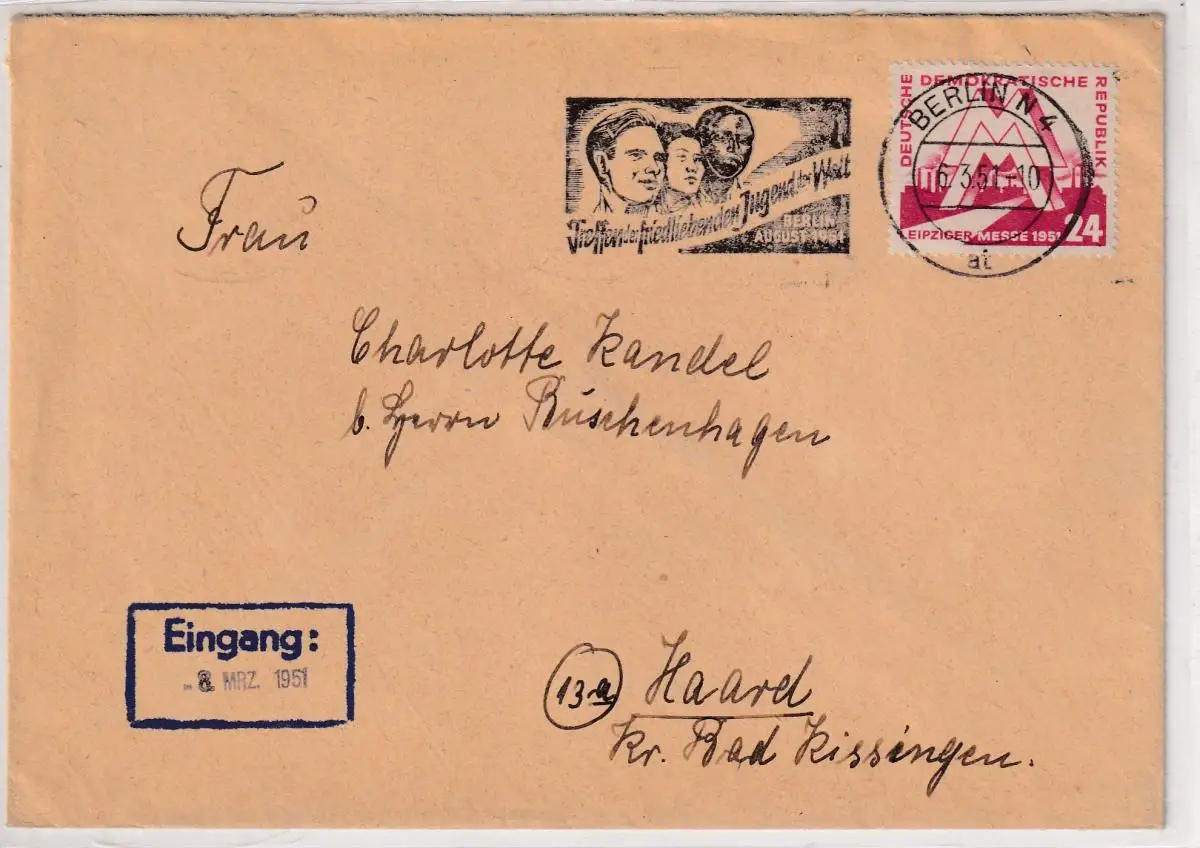 Treffen der friedliebenden Jugend der Welt
BERLIN
AUGUST 1951
DEUTSCHE DEMOKRATISCHE REPUBLIK
LEIPZIGER MESSE 1951 24
BERLIN N 4
6.3.51.-10
at
Frau
Charlotte Kandel
b. Herrn Buschenhagen
Eingang:
- 8. MRZ. 1951
13a Haard
Kr. Bad Kissingen.